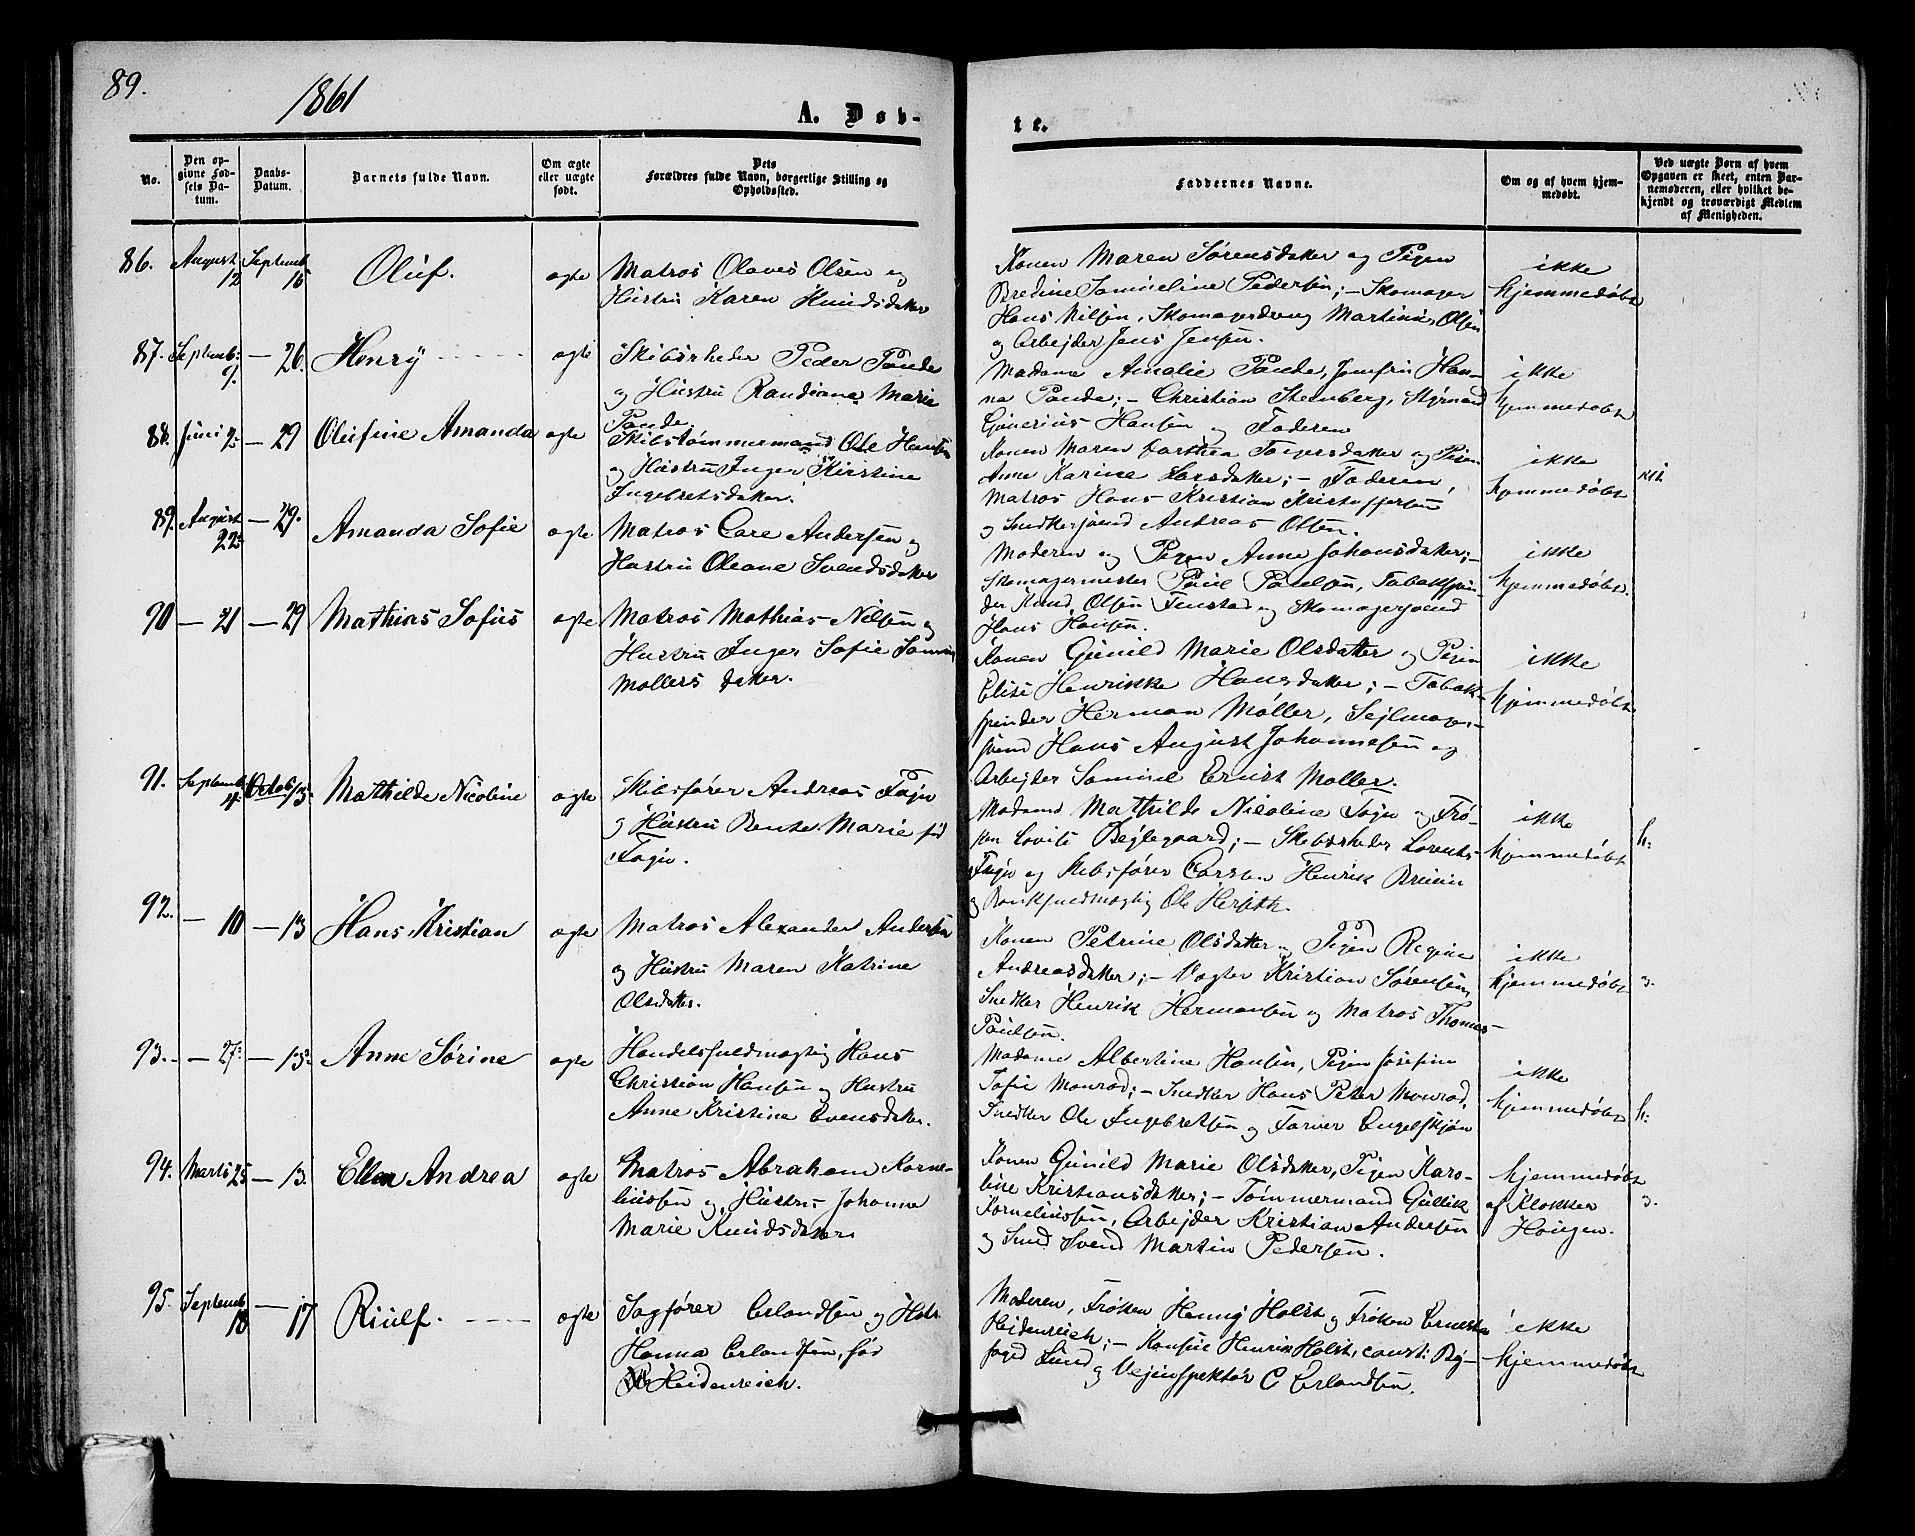 89.
1861
A. Døb-
te.
No.
Den op-
givne Fød-
sels Da-
tum.
Daabs-
Datum.
Barnets fulde Navn.
Om ægte
eller uægte
født.
Dets
Forældres fulde Navn, borgerlige Stilling og
Opholdssted.
Faddernes Navne.
Om og af hvem hjem-
medøbt.
Ved uægte Børn af hvem
Opgaven er skeet, enten Bar-
nemoderen, eller hvilket be-
kjendt og troværdigt Medlem
af Menigheden.
86. August 12 Septemb 15 Oluf. ægte
Matros Olaves Olsen og
Hustru Karen Knudsdatter
Konen Maren Sørensdatter og Pigen
Bredine Samueline Pedersen; - Skomager
Hans Nilsen, Skomagerdreng Martinus Olsen
og Arbejder Jens Jensen.
ikke
hjemmedøbt
87. Septemb: 9. - 26. Henry ægte
Skibsrheder Peder Pande
og Hustru Randiane Marie
Pande.
Madame Amalie Pande, Jomfru Han-
na Pande; - Christian Stenberg, Styrmand
Gunerius Hansen og Faderen
ikke
hjemmedøbt
88. Juni 2: - 29 Olufine Amanda ægte
Skibstømmermand Ole Hansen
og Hustru Inger Kirstine
Ingebretsdatter.
Konen Maren Dorthea Torgersdatter og Pigen
Anne Karine Larsdatter; - Faderen,
Matros Hans Kristian Kristoffersen
og Snedkersvend Andreas Olsen.
ikke
hjemmedøbt
89. August 22: - 29. Amanda Sofie ægte
Matros Care Andersen og
Hustru Oleane Svendsdatter
Moderen og Pigen Anne Johansdatter;
Skomagermester Paul Paulsen, Tobakspin-
der Knud Olsen Fenstad og Skomagersvend
Hans Hansen.
ikke
hjemmedøbt.
90 - 21 - 29 Mathias Sofus ægte
Matros Mathias Nilsen og
Hustru Inger Sofie
Møllers datter.
Konen Gunild Marie Olsdatter og Pigen
Elise Henrikke Hansdatter; - Tobak-
spinder Herman Møller, Sejlmager-
svend Hans August Johannesen og
Arbejder Samuel Ernst Møller.
ikke
hjemmedøbt.
91. Septemb 4. Octob 13. Mathilde Nicoline ægte
Skibsfører Andreas Fogn
og Hustru Bente Marie fød
Fogn.
Madame Mathilde Nicoline Fogn og Frø-
ken Lovise Bejlegaard; - Skibsrheder Lorents
Fogn og Skibsfører Carsten Henrik Bruun
og Bankfuldmægtig Ole Herseth.
ikke
hjemmedøbt
h:
92. - 10 - 13 Hans Kristian ægte
Matros Alexander Andersen
og Hustru Maren Katrine
Olsdatter.
Konen Petrine Olsdatter og Pigen Regine
Andreasdatter; - Vægter Kristian Sørensen,
Snedker Henrik Hermansen og Matros Thomas
Paulsen.
ikke
hjemmedøbt
93. - 27: - 13: Anne Sørine ægte
Handelsfuldmægtig Hans
Christian Hansen og Hustru
Anne Kristine Evensdatter.
Madame Albertine Hansen, Pigen Josefine
Sofie Monrad; - Snedker Hans Peter Monrad,
Snedker Ole Ingebretsen og Farver Engelskjøn
ikke
hjemmedøbt
h:
94. Marts 25 - 13. Ellen Andrea ægte
Matros Abraham Korne-
liussen og Hustru Johanne
Marie Knudsdatter
Konen Gunild Marie Olsdatter, Pigen Karo-
line Kristiansdatter; - Tømmermand Gullik
Korneliussen, Arbejder Kristian Andersen
og Smed Svend Martin Pedersen.
hjemmedøbt
af Klokker
Hougen.
95. Septemb 18 - 17 Riulf. ægte
Sagfører Erlandsen og Hustru
Hanna Erlandsen, fød
Heidenreich.
Moderen, Frøken Henny Holst og Frøken Ernesta
Heidenreich; - Konsul Henrik Holst, const: By-
foged Lund og Vejinspektør C Erlandsen.
ikke
hjemmedøbt